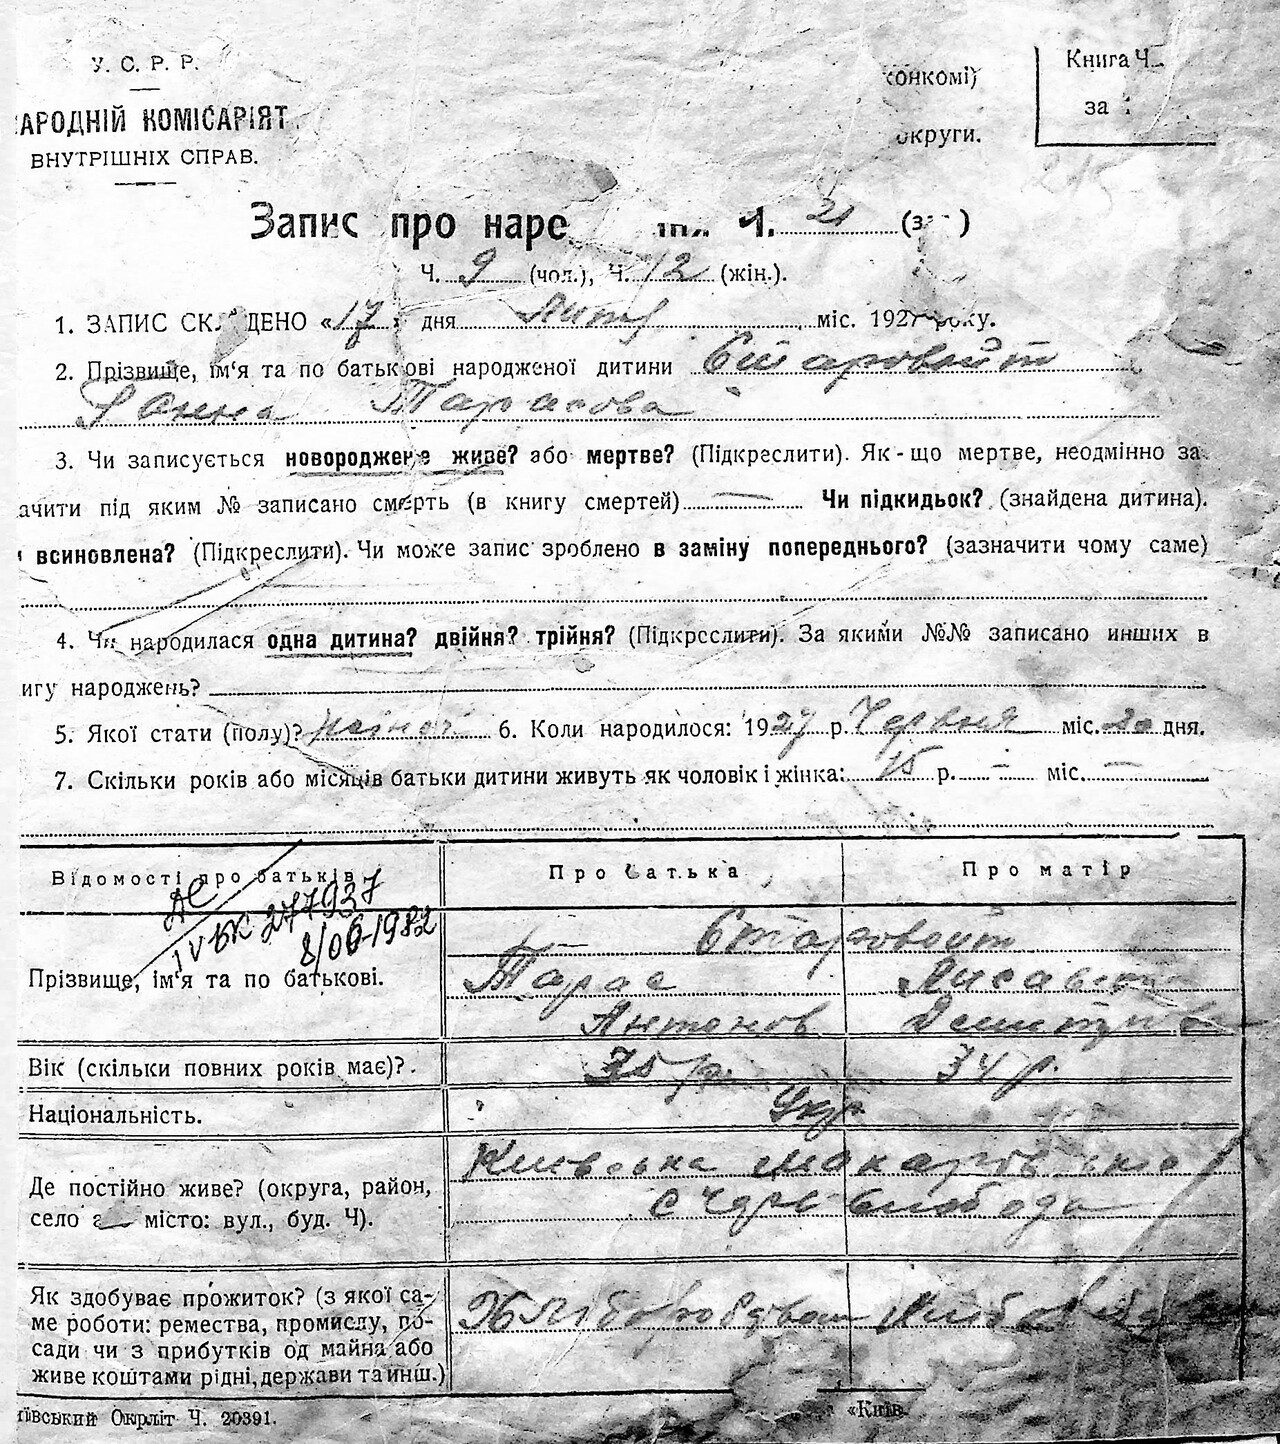 У. С. Р. Р.
АРОДНІЙ КОМІСАРІЯТ
ВНУТРІШНІХ СПРАВ.
конкомі)
округи.
Книга Ч
за
215
Запис про наре Ч. 21 (з )
Ч. 9 (чол.), Ч. 12 (жін.).
1. ЗАПИС СКЛ ДЕНО «17» дня міс. 1927 року.
2. Прізвище, ім'я та по батькові народженої дитини Старовойт
Ганна Тарасова
3. Чи записується новороджене живе? або мертве? (Підкреслити). Як-що мертве, неодмінно за-
ачити під яким № записано смерть (в книгу смертей) Чи підкидьок? (знайдена дитина).
и всиновлена? (Підкреслити). Чи може запис зроблено в заміну попереднього? (зазначити чому саме)
4. Чи народилася одна дитина? двійня? трійня? (Підкреслити). За якими №№ записано инших в
игу народжень?
5. Якої стати (полу)? жіноч 6. Коли народилося: 1927 р. Червня міс. 20 дня.
7. Скільки років або місяців батьки дитини живуть як чоловік і жінка: 15 р. — міс. —
Відомості про батьків Про батька Про матір
IV БК 277937
8/06-1982
Старовойт
Прізвище, ім'я та по батькові. Тарас Лисавета
Антонов
Вік (скільки повних років має)?. 35 р. 34 р.
Національність. Укр
Київська Макаров
Де постійно живе? (округа, район,
село а місто: вул., буд. Ч). с Чорн Слобода
Як здобуває прожиток? (з якої са-
ме роботи: ремества, промислу, по-
сади чи з прибутків од майна або
живе коштами рідні, держави та инш.)
Хліборобством
иївський Окрліт Ч. 20391.
«Київ